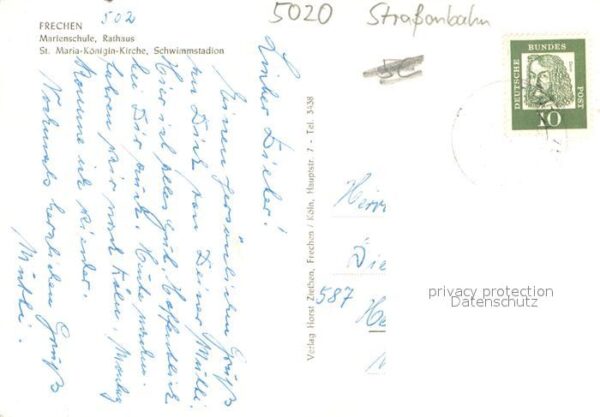 5020 Straßenbahn
502
5C
FRECHEN
Marienschule, Rathaus
St. Maria-Königin-Kirche, Schwimmstadion
Lieber Dieter!
Meinen persönlichen Gruß
an Dich von Deiner Mutti.
Hier ist alles gut. Hoffentlich
bei Dir auch. Heute
fahren wir nach Köln. Montag
komme ich wieder.
Nochmals herzlichen Gruß
Mutti.
Verlag Horst Ziethen, Frechen / Köln, Hauptstr. 7 - Tel. 3438
DEUTSCHE BUNDESPOST
10
Herrn
Die
587
He
privacy protection
Datenschutz